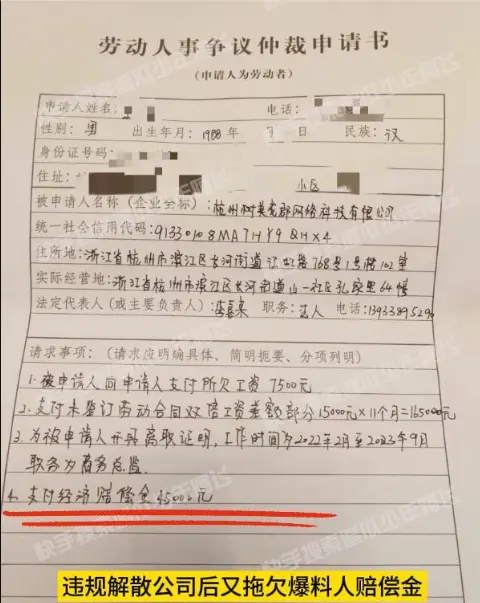 劳动人事争议仲裁申请书
(申请人为劳动者)
申请人姓名: 电话:
性别: 男 出生年月: 1988 年 月 日 民族: 汉
身份证号码:
住址: 小区
被申请人名称(企业全称): 杭州树美克郡网络科技有限公司
统一社会信用代码: 91330108MA7HY9QHX4
住所地: 浙江省杭州市滨江区长河街道江虹路768号1号楼102室
实际经营地: 浙江省杭州市滨江区长河街道山一社区孔家里64幢
法定代表人(或主要负责人): 职务: 法人 电话:
请求事项: (请求应明确具体、简明扼要、分项列明)
1. 被申请人向申请人支付所欠工资 7500元
2. 支付未签订劳动合同双倍工资差额部分15000元×11个月=165000元
3. 为被申请人开具离职证明, 工作时间为2022年2月至2023年9月
职务为商务总监.
4. 支付经济赔偿金45000元
违规解散公司后又拖欠爆料人赔偿金